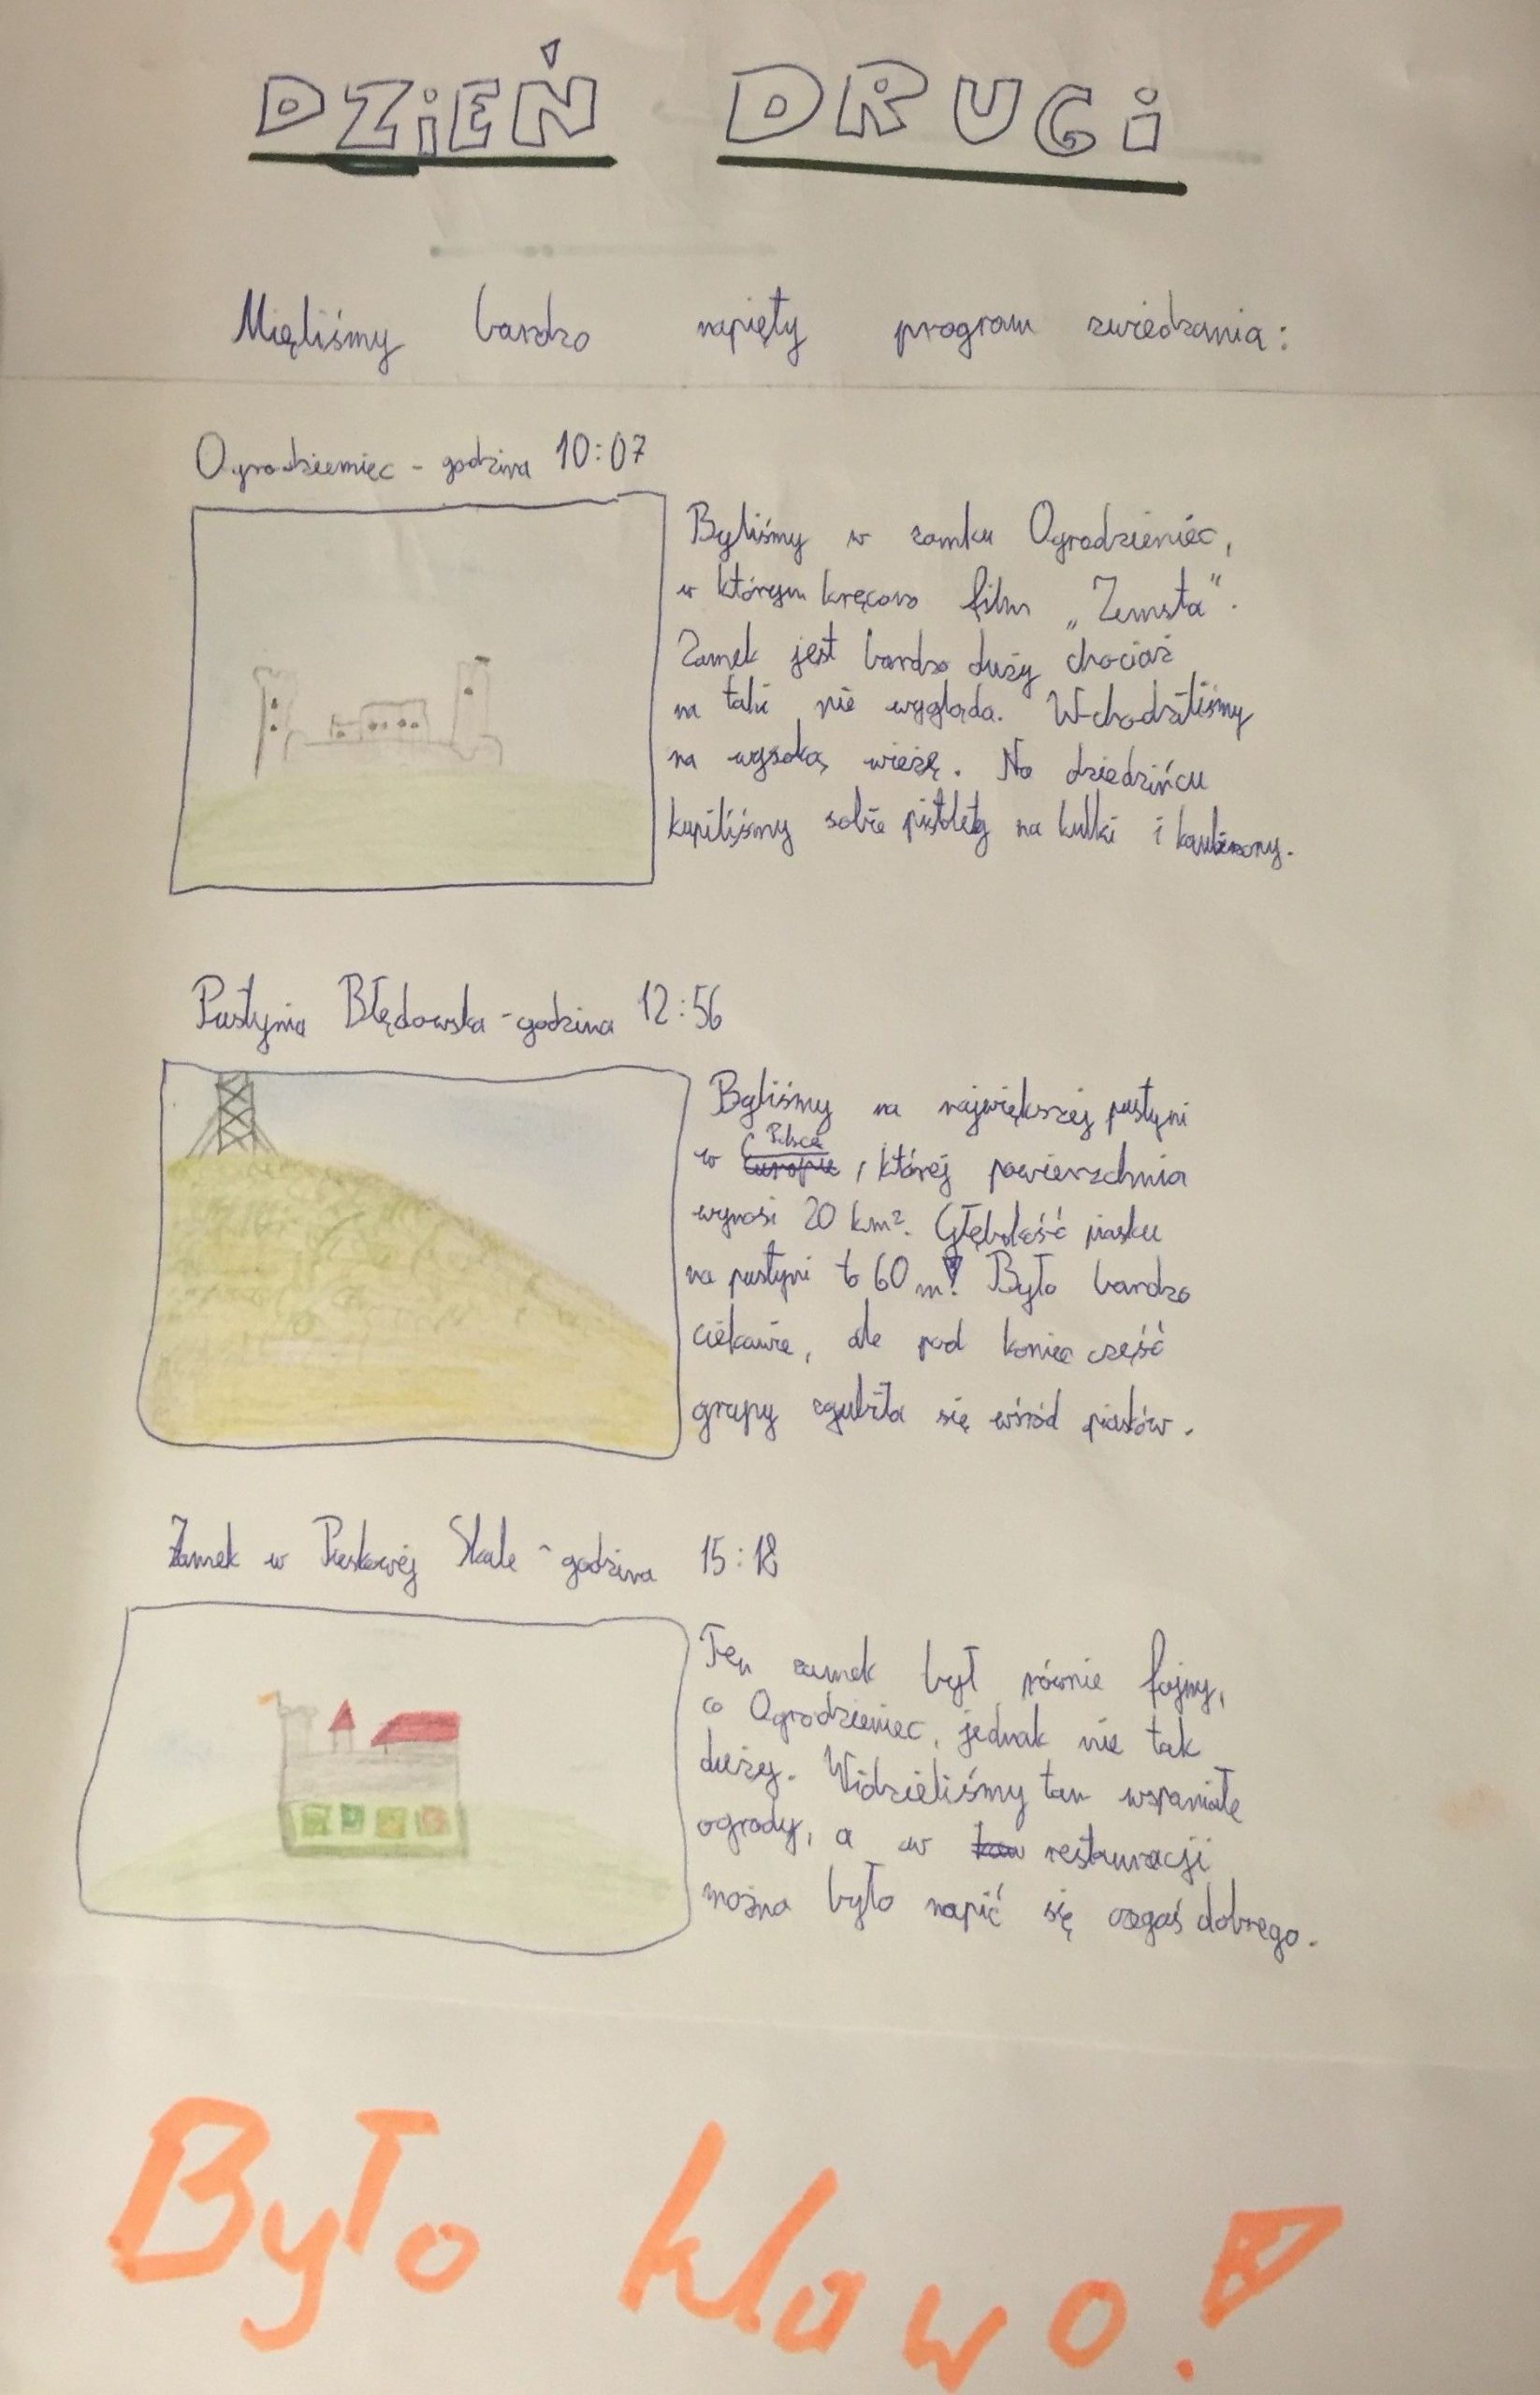 DZiEŃ DRUGi
Mięliśmy bardzo napięty program zwiedzania:
Ogrodzieniec - godzina 10:07
Byliśmy w zamku Ogrodzieniec,
w którym kręcono film „Zemsta".
Zamek jest bardzo duży chociaż
na taki nie wygląda. Wchodziliśmy
na wysoką wieżę. Na dziedzińcu
kupiliśmy sobie pistolety na kulki i
Pustynia Błędowska - godzina 12:56
Byliśmy na największej pustyni
w Polsce, której powierzchnia
wynosi 20 km². Głębokość piasku
na pustyni to 60 m! Było bardzo
ciekawie, ale pod koniec część
grupy zgubiła się wśród piasków.
Zamek w Pieskowej Skale - godzina 15:18
Ten zamek był równie fajny,
co Ogrodzieniec, jednak nie tak
duży. Widzieliśmy tam wspaniałe
ogrody, a w restauracji
można było napić się czegoś dobrego.
Było klawo!